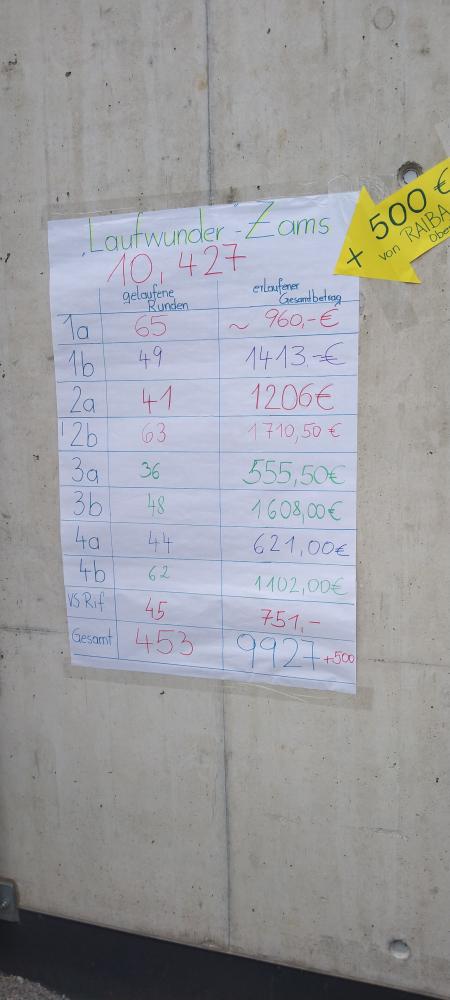 „Laufwunder" - Zams
10, 427
gelaufene Runden
erlaufener Gesamtbetrag
1a 65 ~ 960,-€
1b 49 1413.-€
2a 41 1206€
2b 63 1710,50 €
3a 36 555,50€
3b 48 1608,00€
4a 44 621,00€
4b 62 1102,00€
VS Rif 45 751,-
Gesamt 453 9927 +500
+ 500 €
von RAIBA